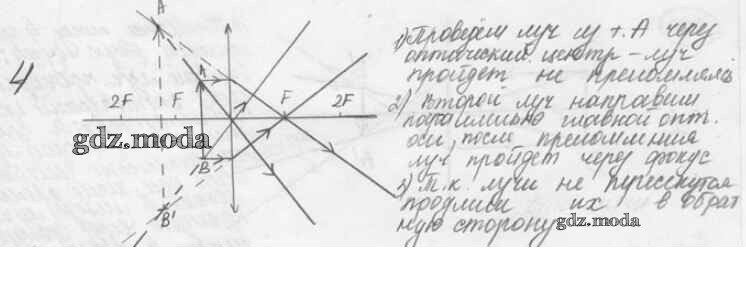 4
A
A
2F
F
F
2F
B
B'
1) Проведём луч из т. A через
оптический центр - луч
пройдет не преломляясь
2) Второй луч направим
параллельно главной опт.
оси, после преломления
луч пройдет через фокус
3) Т.к. лучи не пересекутся
продлим их в обрат
ную сторону
gdz.moda
gdz.moda